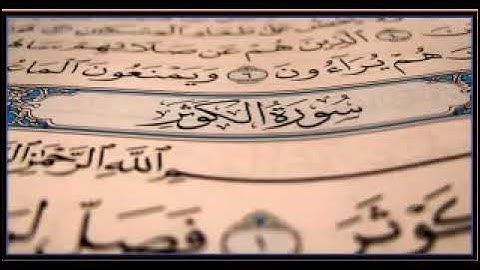 طعام المسكين
الذين هم عن صلاتهم
هم يراءون ٦ ويمنعون الما
سُورَةُ الكَوْثَرِ
اللَّهِ الرَّحْمَٰنِ ال
كَوْثَرَ ١ فَصَلِّ لِ